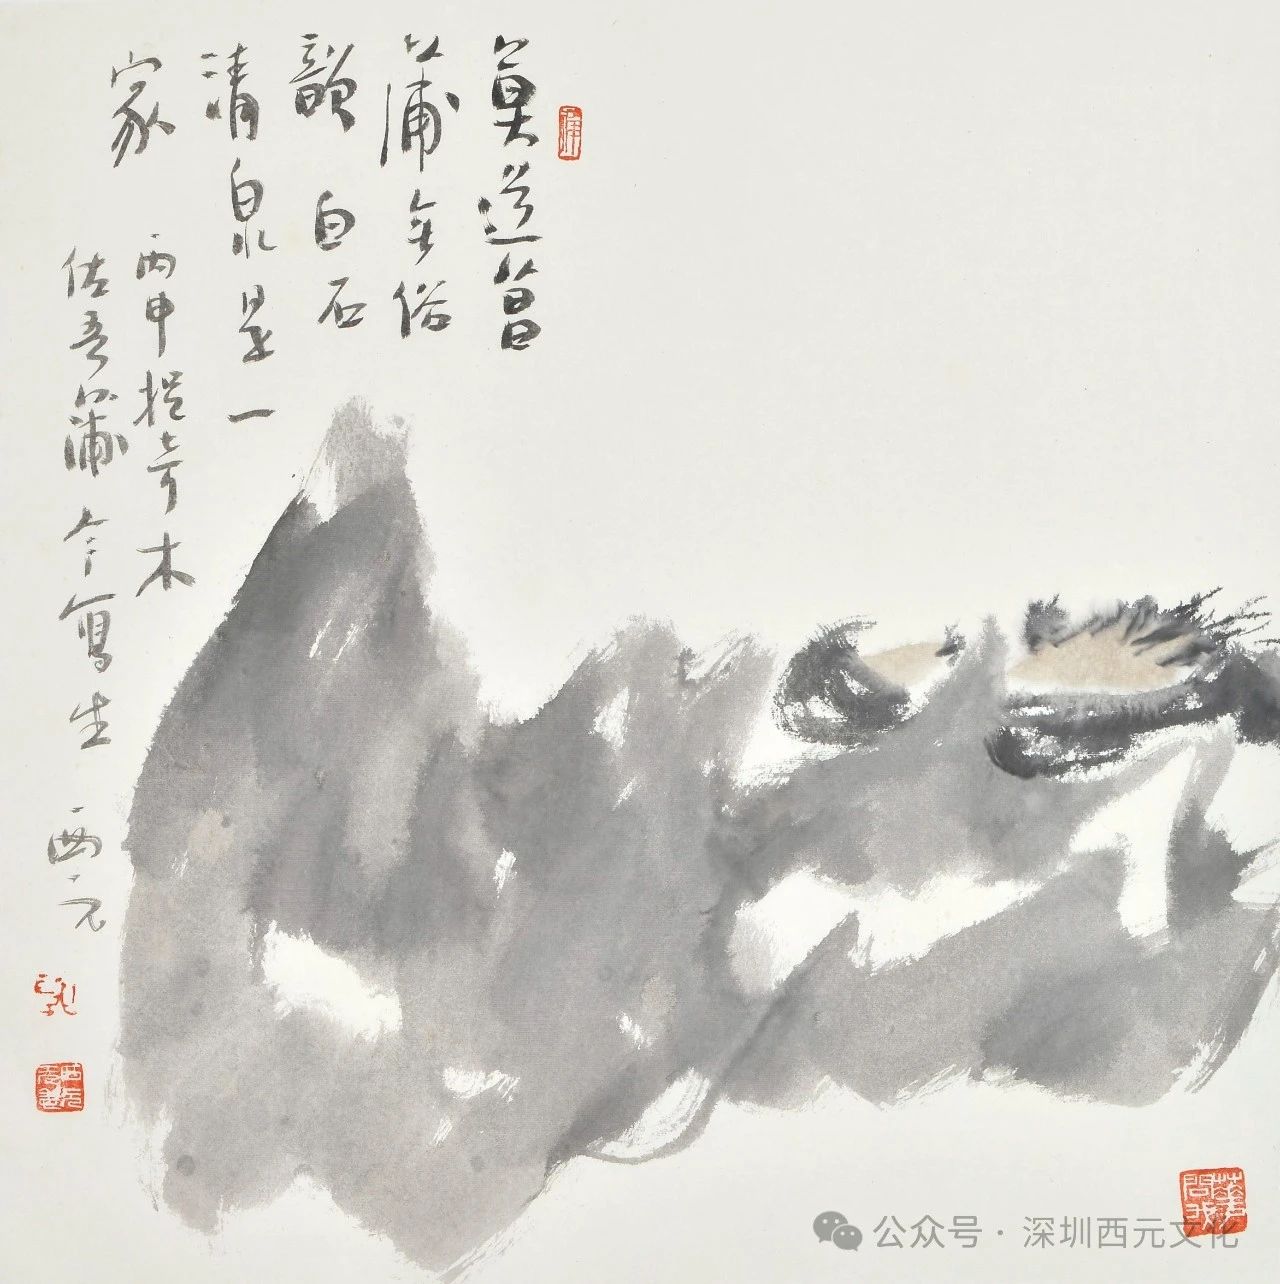 莫道菖
蒲无俗
韵白石
清泉是一
家
丙申
奇木
佐吾蒲今写生
西元
公众号·深圳西元文化